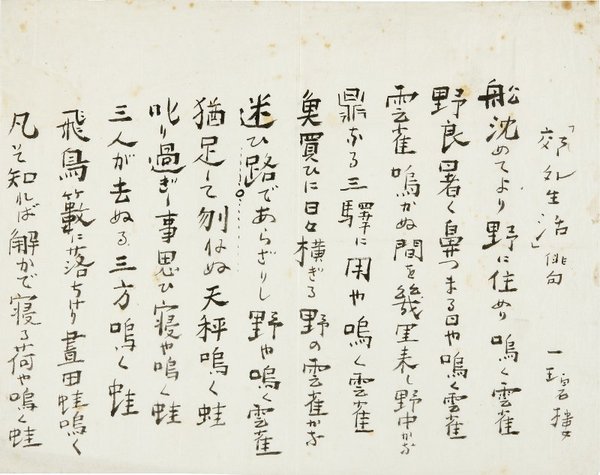 「郊外生活」俳句 一碧樓
船沈めてより野に住めり鳴く雲雀
野良暑く鼻つまる日や鳴く雲雀
雲雀鳴かぬ間を幾里来し野中かな
鼎なる三驛に用や鳴く雲雀
魚買ひに日々横ぎる野の雲雀かな
迷ひ路であらざりし野や鳴く雲雀
猶足して刎ねぬ天秤鳴く蛙
叱り過ぎし事思ひ寝や鳴く蛙
三人が去ぬる三方鳴く蛙
飛鳥籔に落ちけり晝田蛙鳴く
凡そ知れば解かで寝る荷や鳴く蛙